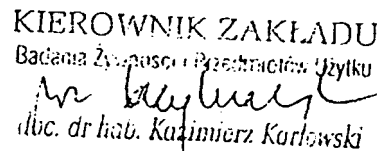 KIEROWNIK ZAKŁADU
Badania Żywności i Przedmiotów Użytku
doc. dr hab. Kazimierz Karłowski